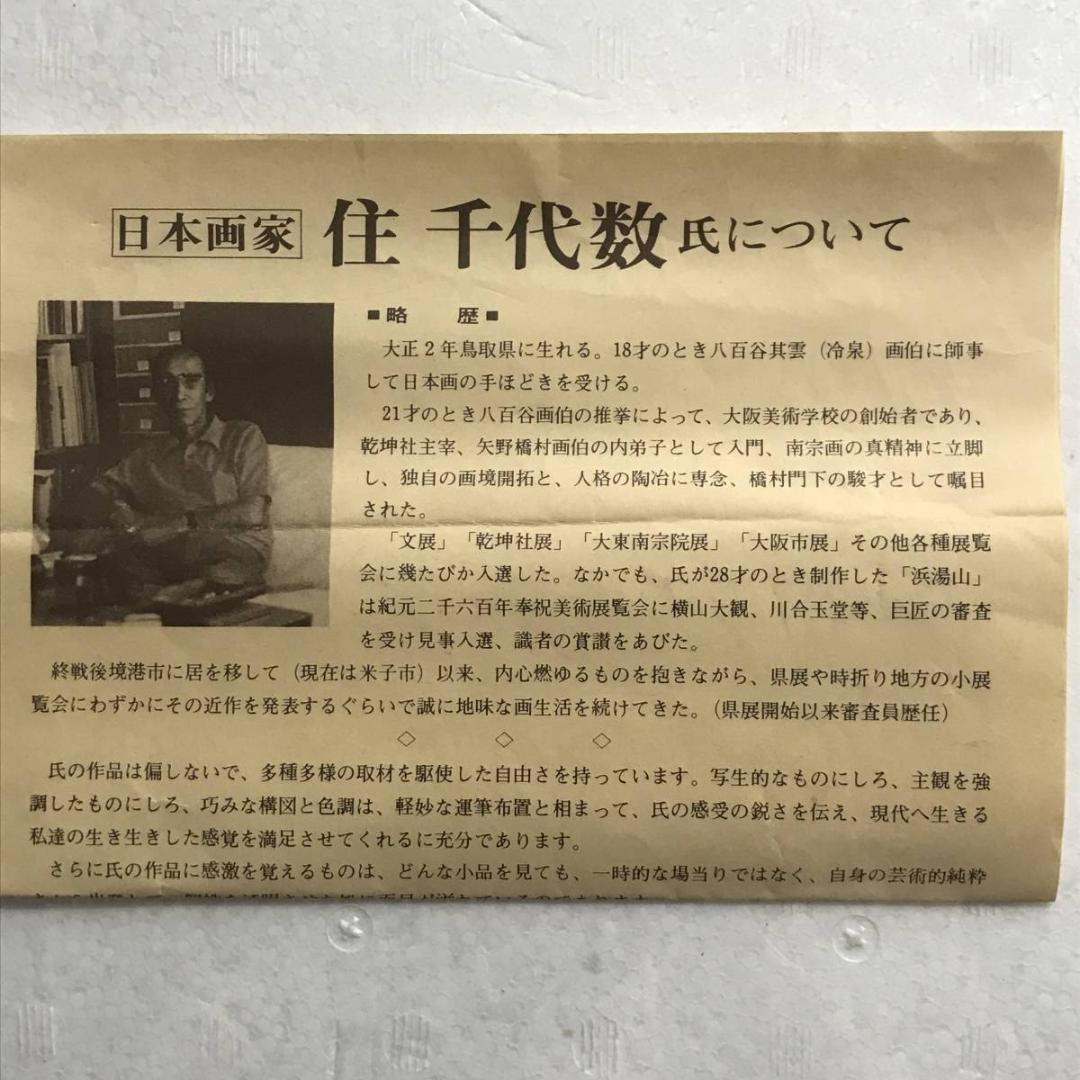 日本画家 住 千代数氏について
■略 歴■
大正2年鳥取県に生れる。18才のとき八百谷其雲（冷泉）画伯に師事
して日本画の手ほどきを受ける。
21才のとき八百谷画伯の推挙によって、大阪美術学校の創始者であり、
乾坤社主宰、矢野橋村画伯の内弟子として入門、南宗画の真精神に立脚
し、独自の画境開拓と、人格の陶冶に専念、橋村門下の駿才として嘱目
された。
「文展」「乾坤社展」「大東南宗院展」「大阪市展」その他各種展覧
会に幾たびか入選した。なかでも、氏が28才のとき制作した「浜湯山」
は紀元二千六百年奉祝美術展覧会に横山大観、川合玉堂等、巨匠の審査
を受け見事入選、識者の賞讃をあびた。
終戦後境港市に居を移して（現在は米子市）以来、内心燃ゆるものを抱きながら、県展や時折り地方の小展
覧会にわずかにその近作を発表するぐらいで誠に地味な画生活を続けてきた。（県展開始以来審査員歴任）
◇ ◇ ◇
氏の作品は偏しないで、多種多様の取材を駆使した自由さを持っています。写生的なものにしろ、主観を強
調したものにしろ、巧みな構図と色調は、軽妙な運筆布置と相まって、氏の感受の鋭さを伝え、現代へ生きる
私達の生き生きした感覚を満足させてくれるに充分であります。
さらに氏の作品に感激を覚えるものは、どんな小品を見ても、一時的な場当りではなく、自身の芸術的純粋